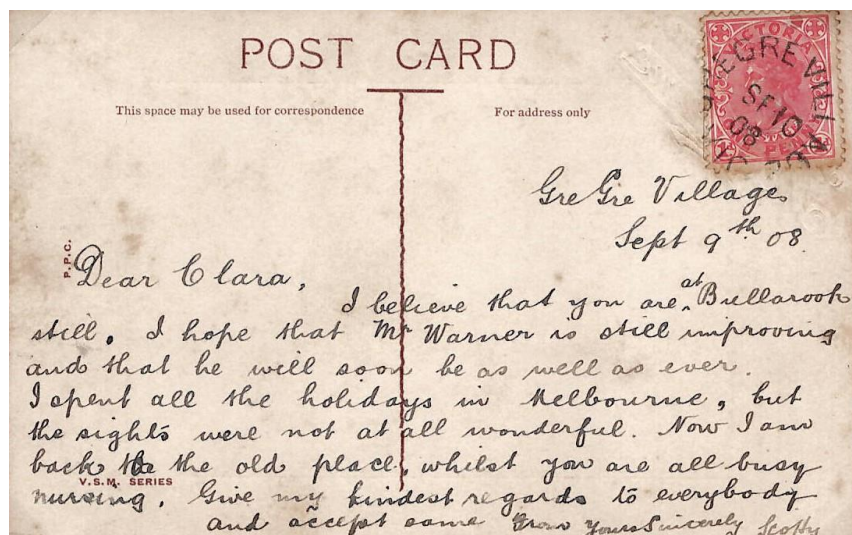 POST CARD
This space may be used for correspondence
For address only
VICTORIA
GRE GRE VILLAGE
SE 10
08
PENNY
Gre Gre Village
Sept 9th 08.
P.P.C.
Dear Clara,
I believe that you are at Bullarook
still. I hope that Mr Warner is still improving
and that he will soon be as well as ever.
I spent all the holidays in Melbourne, but
the sights were not at all wonderful. Now I am
back to the old place, whilst you are all busy
V.S.M. SERIES
nursing. Give my kindest regards to everybody
and accept same From Yours Sincerely Scotty